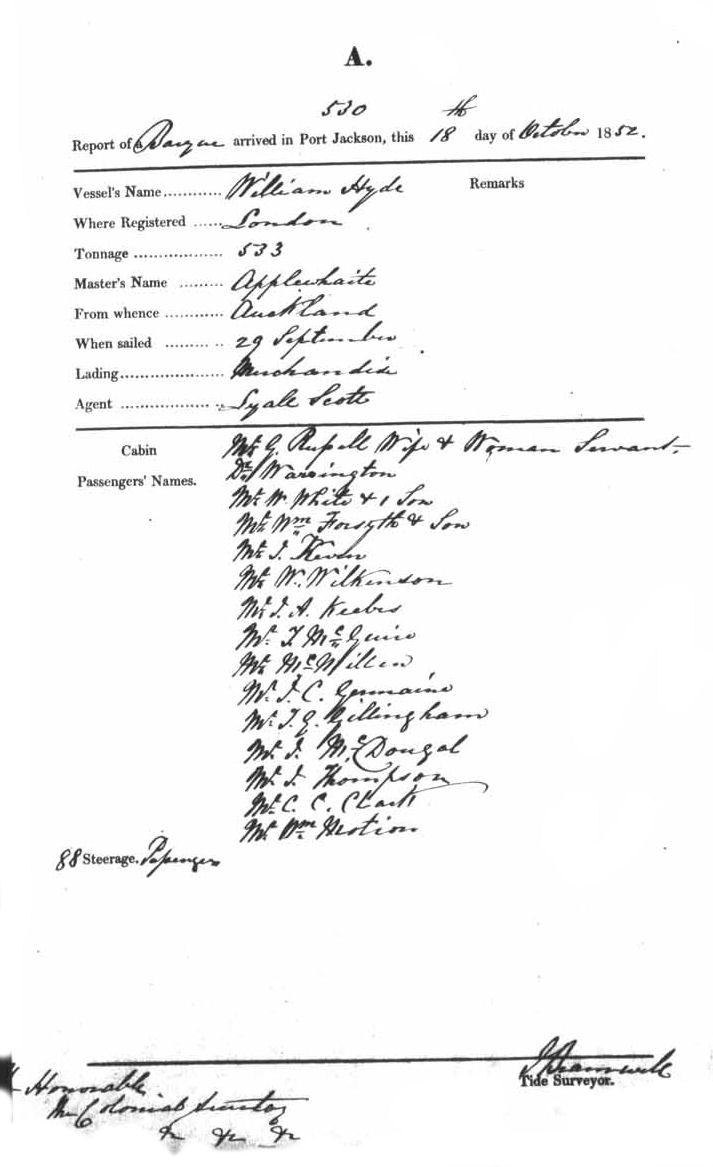 A.
530
Report of a Barque arrived in Port Jackson, this 18th day of October 1852.
Vessel's Name............ William Hyde Remarks
Where Registered ...... London
Tonnage .................. 533
Master's Name ......... Applewhaite
From whence ............ Auckland
When sailed ......... .. 29 September
Lading..................... Merchandise
Agent .................... Lyall Scott
Cabin Mr. G. Russell Wife & Woman Servant
Passengers' Names. Dr. Warrington
Mr. W. White & 1 Son
Mr. Wm Forsyth & Son
Mr. J.
Mr. W. Wilkinson
Mr. J. A.
Mr. T. McGuire
Mr. McMillen
Mr. J. C. Germaine
Mr. J. G. Gillingham
Mr. J. McDougal
Mr. J. Thompson
Mr. C. C. Clark
Mr. Wm
88 Steerage. Passengers
J Bramwell
Tide Surveyor.
Honorable
The Colonial Secretary
&c &c &c